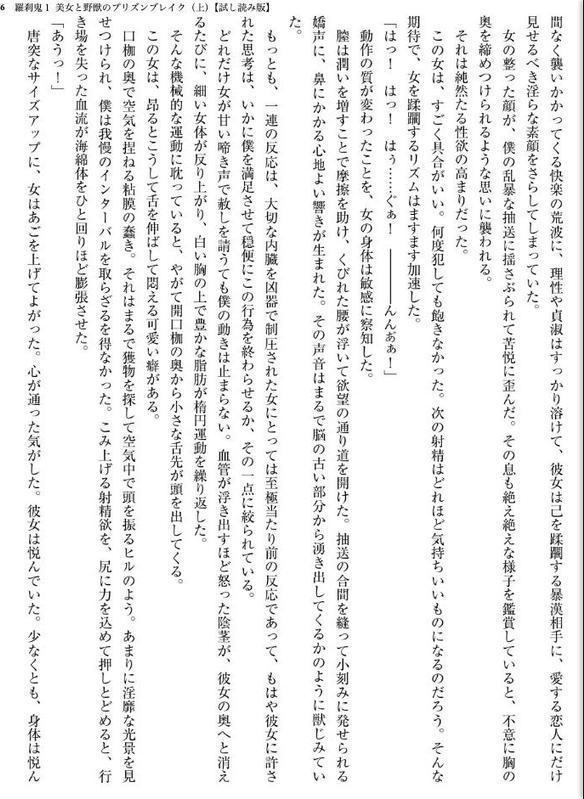 6　羅刹鬼1 美女と野獣のプリズンブレイク（上）【試し読み版】
間なく襲いかかってくる快楽の荒波に、理性や貞淑はすっかり溶けて、彼女は己を蹂躙する暴漢相手に、愛する恋人にだけ
見せるべき淫らな素顔をさらしてしまっていた。
　女の整った顔が、僕の乱暴な抽送に揺さぶられて苦悦に歪んだ。その息も絶え絶えな様子を鑑賞していると、不意に胸の
奥を締めつけられるような思いに襲われる。
　それは純然たる性欲の高まりだった。
　この女は、すごく具合がいい。何度犯しても飽きなかった。次の射精はどれほど気持ちいいものになるのだろう。そんな
期待で、女を蹂躙するリズムはますます加速した。
「はっ！　はっ！　はぅ……ぐぁ！　――――んんあぁ！」
　動作の質が変わったことを、女の身体は敏感に察知した。
　膣は潤いを増すことで摩擦を助け、くびれた腰が浮いて欲望の通り道を開けた。抽送の合間を縫って小刻みに発せられる
嬌声に、鼻にかかる心地よい響きが生まれた。その声音はまるで脳の古い部分から湧き出してくるかのように獣じみてい
た。
　もっとも、一連の反応は、大切な内臓を凶器で制圧された女にとっては至極当たり前の反応であって、もはや彼女に許さ
れた思考は、いかに僕を満足させて穏便にこの行為を終わらせるか、その一点に絞られている。
　どれだけ女が甘い啼き声で赦しを請うても僕の動きは止まらない。血管が浮き出すほど怒った陰茎が、彼女の奥へと消え
るたびに、細い女体が反り上がり、白い胸の上で豊かな脂肪が楕円運動を繰り返した。
　そんな機械的な運動に耽っていると、やがて開口枷の奥から小さな舌先が頭を出してくる。
　この女は、昂るとこうして舌を伸ばして悶える可愛い癖がある。
　口枷の奥で空気を捏ねる粘膜の蠢き。それはまるで獲物を探して空気中で頭を振るヒルのよう。あまりに淫靡な光景を見
せつけられ、僕は我慢のインターバルを取らざるを得なかった。こみ上げる射精欲を、尻に力を込めて押しとどめると、行
き場を失った血流が海綿体をひと回りほど膨張させた。
「あうっ！」
　唐突なサイズアップに、女はあごを上げてよがった。心が通った気がした。彼女は悦んでいた。少なくとも、身体は悦ん